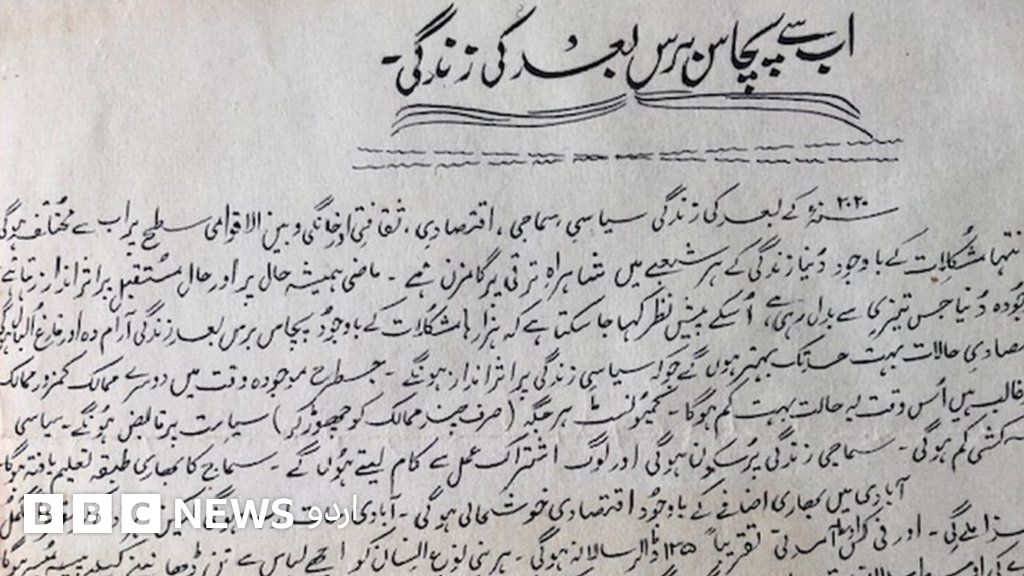 اب سے پچاس برس بعد کی زندگی۔
سنہ ۲۰۲۰ء کے بعد کی زندگی سیاسی، سماجی، اقتصادی، ثقافتی اور خانگی و بین الاقوامی سطح پر اب سے مختلف ہوگی
مشکلات کے باوجود دُنیا زندگی کے ہر شعبے میں شاہراہِ ترقی پر گامزن ہے۔ ماضی ہمیشہ حال پر اور حال مُستقبل پر اثر انداز رہتا ہے
دنیا جس تیزی سے بدل رہی ہے، اُسکے پیش نظر کہا جا سکتا ہے کہ ہزار ہا مشکلات کے باوجود پچاس برس بعد زندگی آرام دہ اور فارغ البالی
حالات بہت حد تک بہتر ہوں گے جو کہ سیاسی زندگی پر اثر انداز ہونگے۔ جسطرح موجودہ وقت میں دوسرے ممالک کمزور ممالک
غالب ہیں اُس وقت یہ حالت بہت کم ہوگا۔ کمیونسٹ ہر جگہ (صرف چند ممالک کو چھوڑ کر) سیاست پر قابض ہونگے۔ سیاسی
کشی کم ہوگی۔ سماجی زندگی پُرسکون ہوگی اور لوگ اشتراک عمل سے کام لیتے ہوں گے۔ سماج کا بھاری طبقہ تعلیم یافتہ ہوگا۔
آبادی میں بھاری اضافے کے باوجُود اقتصادی خوشحالی ہوگی۔ آبادی
BBC NEWS اردو
ملے گی۔ اور فی کس آمدنی تقریباً ۱۲۵ ڈالر سالانہ ہوگی۔ ہر بنی نوع انسان کو اچھے لباس سے تن ڈھانپنے